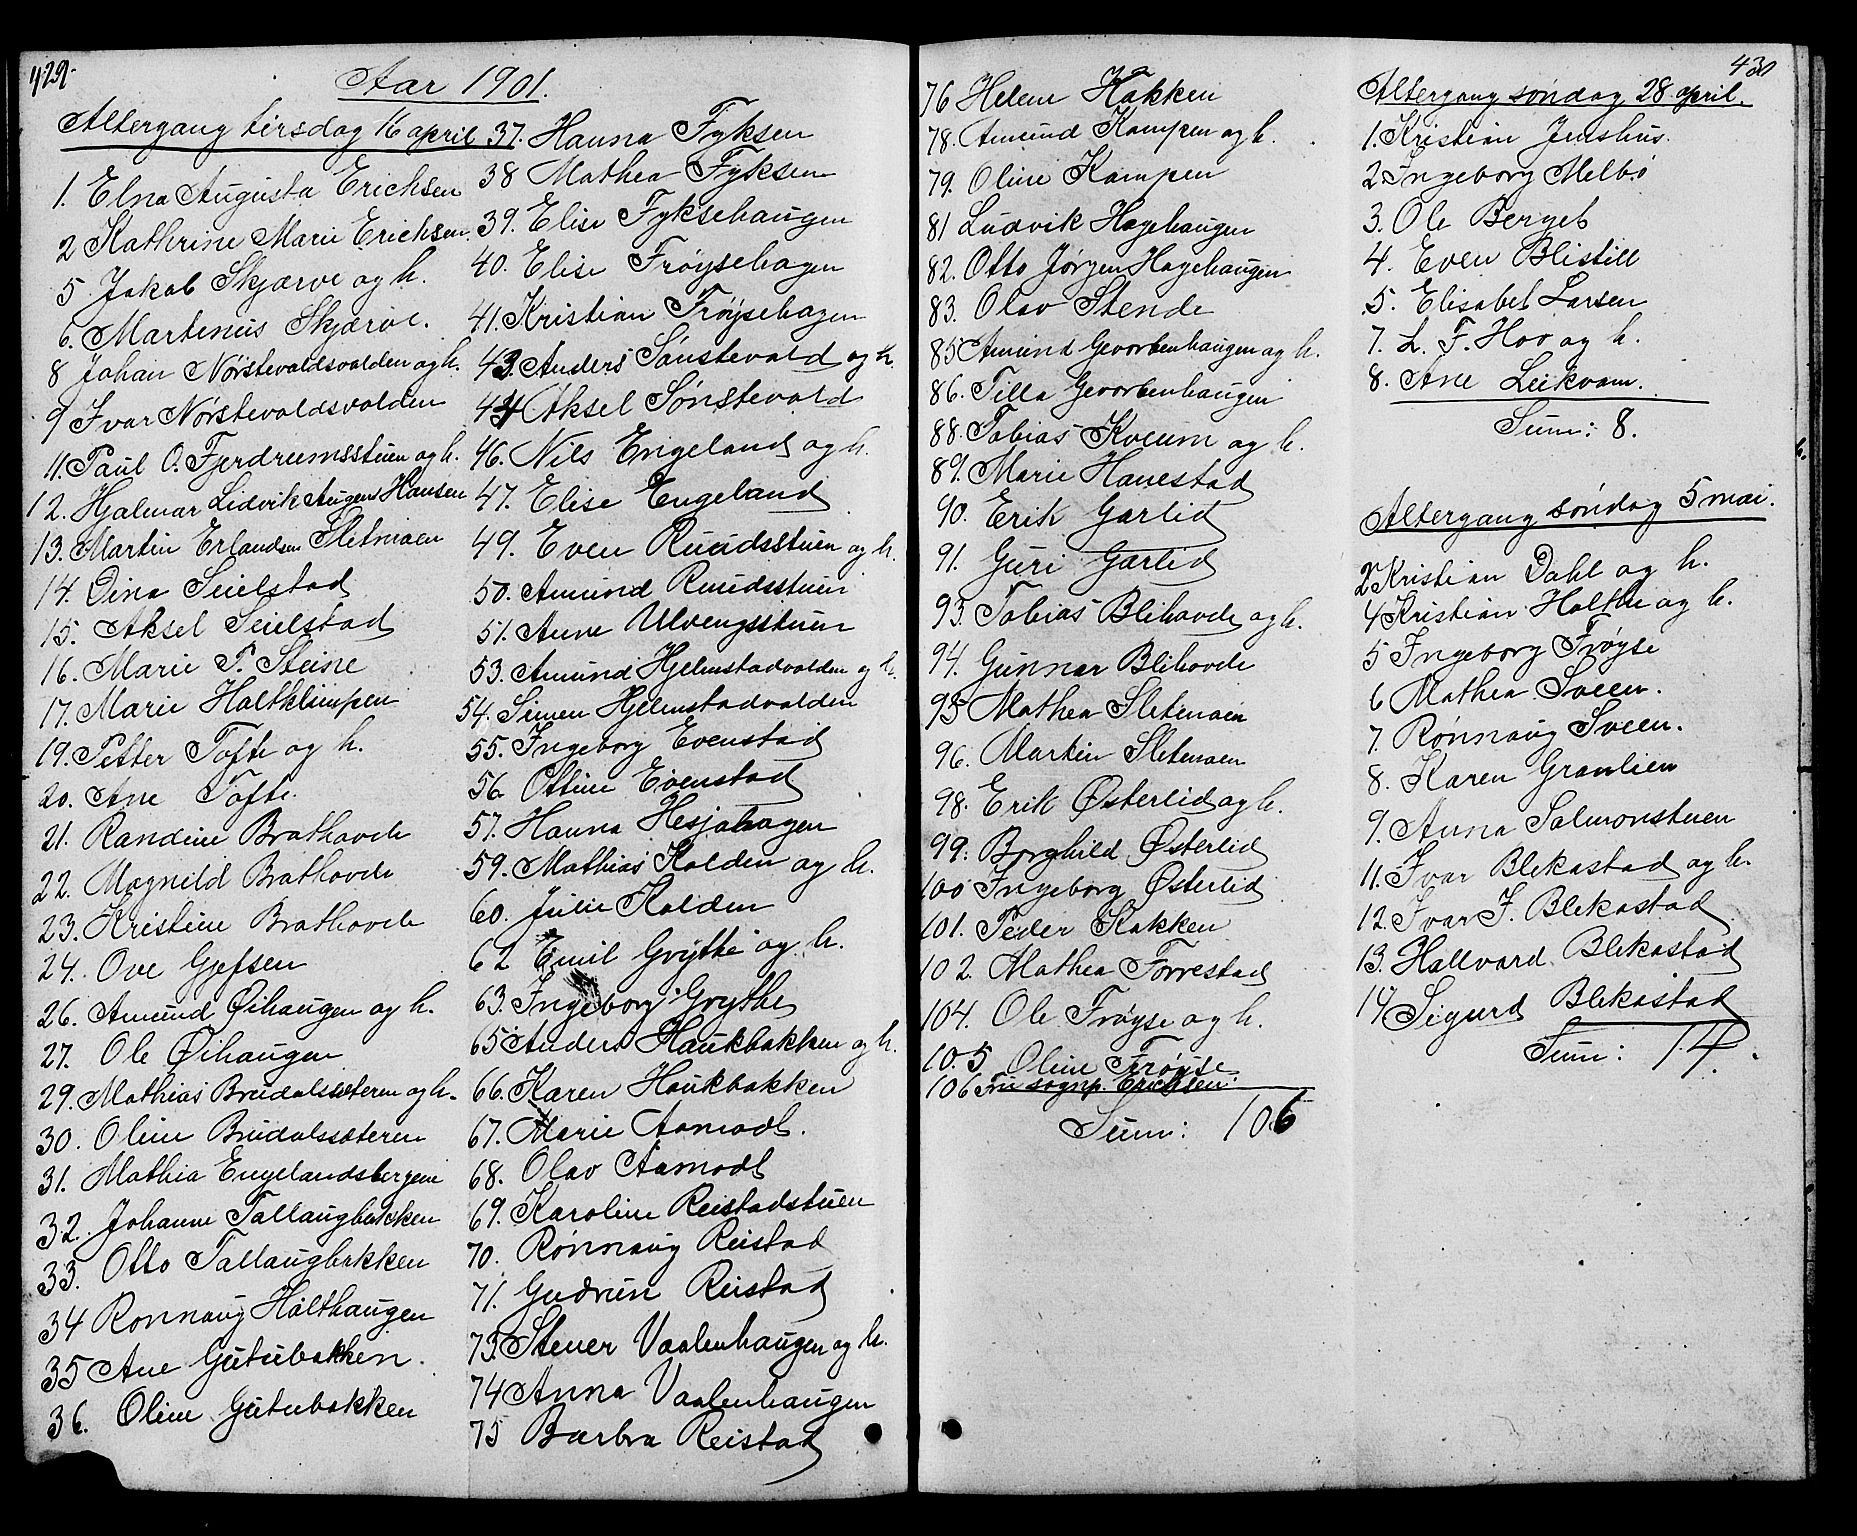 429.
Aar 1901.
Altergang tirsdag 16 april
1. Elna Augusta Erichsen
2 Kathrine Marie Erichsen.
5 Jakob Skjærve og h.
6. Martinus Skjærve.
8 Johan Nørstevoldsvolden og h.
9 Ivar Nørstevoldsvolden
11. Paul O. Fjerdrumsstuen og h.
12. Hjalmar Ludvik August Hansen
13. Martin Erlandsen Sletmoen
14. Dina Seielstad
15. Aksel Seielstad
16. Marie P. Steine
17. Marie Holtklimpen
19. Petter Tofte og h.
20. Ane Tofte.
21. Randine Brathovde
22. Magnild Brathovde
23. Kristine Brathovde
24. Ove Gjefsen
26. Amund Øihaugen og h.
27. Ole Øihaugen
29. Mathias Brudalssæteren og h.
30. Oline Brudalssæteren
31. Mathia Engelandsbergene
32. Johanne Tallaugbakken
33. Otto Tallaugbakken
34 Rønnaug Holthaugen
35 Ane Gutubakken.
36. Oline Gutubakken
37. Hanna Fyksen
38 Mathea Fyksen
39. Elise Fyksehaugen
40. Elise Frøysehagen
41. Kristian Frøysehagen
43. Anders Sønstevold og h.
44 Aksel Sønstevold
46. Nils Engeland og h.
47. Elise Engeland
49. Even Ruudsstuen og h.
50. Amund Ruudsstuen
51. Anne Ulvengsstuen
53. Amund Hjelmstadvolden og h.
54. Simen Hjelmstadvolden
55. Ingeborg Evenstad
56 Ottine Evenstad
57. Hanna Hesjahagen
59. Mathias Kolden og h.
60. Julie Kolden
62 Emil Grytte og h.
63. Ingeborg Grythe
65 Anders Haukbakken og h.
66. Karen Haukbakken
67. Marie Aamodt.
68. Olav Aamodt
69. Karoline Reistadstuen
70. Rønnaug Reistad
71. Gudrun Reistad
73. Stener Vaalenhaugen og h.
74 Anna Vaalenhaugen
75 Barbra Reistad
430
76 Helene Kakken
78. Amund Kampen og h.
79. Oline Kampen
81 Ludvik Hagehaugen
82. Otto Jørgen Hagehaugen
83. Olav Stende
85 Amund Gevorbenhaugen og h.
86. Tilla Gevorbenhaugen
88. Tobias Kveum og h.
89. Marie Hanestad
90. Erik Garlid
91. Guri Garlid
93. Tobias Blihovde og h.
94. Gunnar Blihovde
95 Mathea Sletmoen
96. Martin Sletmoen
98. Erik Østerlid og h.
99. Borghild Østerlid
100 Ingeborg Østerlid
101. Peder Kakken
102. Mathea Forrestad
104. Ole Frøyse og h.
105 Oline Frøyse
106 Fru sognp. Erichsen.
Sum: 106
Altergang søndag 28 april.
1. Kristian Jenshus.
2. Ingeborg Melbø
3. Ole Berget
4. Even Blistill
5. Elisabet Larsen
7. L. F. Hov og h.
8. Ane Leikvam.
Sum: 8.
Altergang søndag 5 mai.
2 Kristian Dahl og h.
4 Kristian Holthe og h.
5 Ingeborg Frøyse
6 Mathea Sveen.
7. Rønnaug Sveen.
8. Karen Granlien
9. Anna Salmonstuen
11. Ivar Blekastad og h.
12. Ivar I. Blekastad
13. Hallvard Blekastad
14 Sigurd Blekastad
Sum: 14.